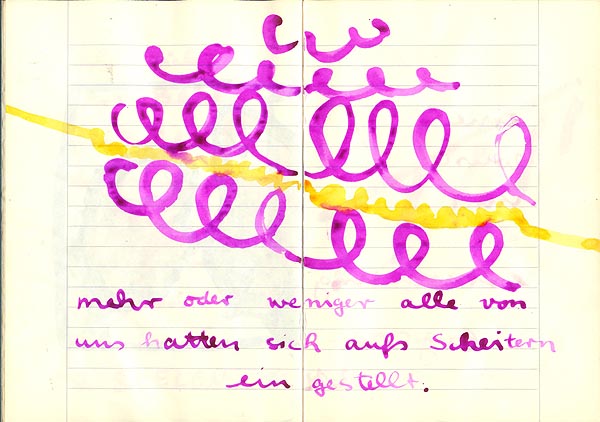 mehr oder weniger alle von
uns hatten sich aufs Scheitern
ein gestellt.